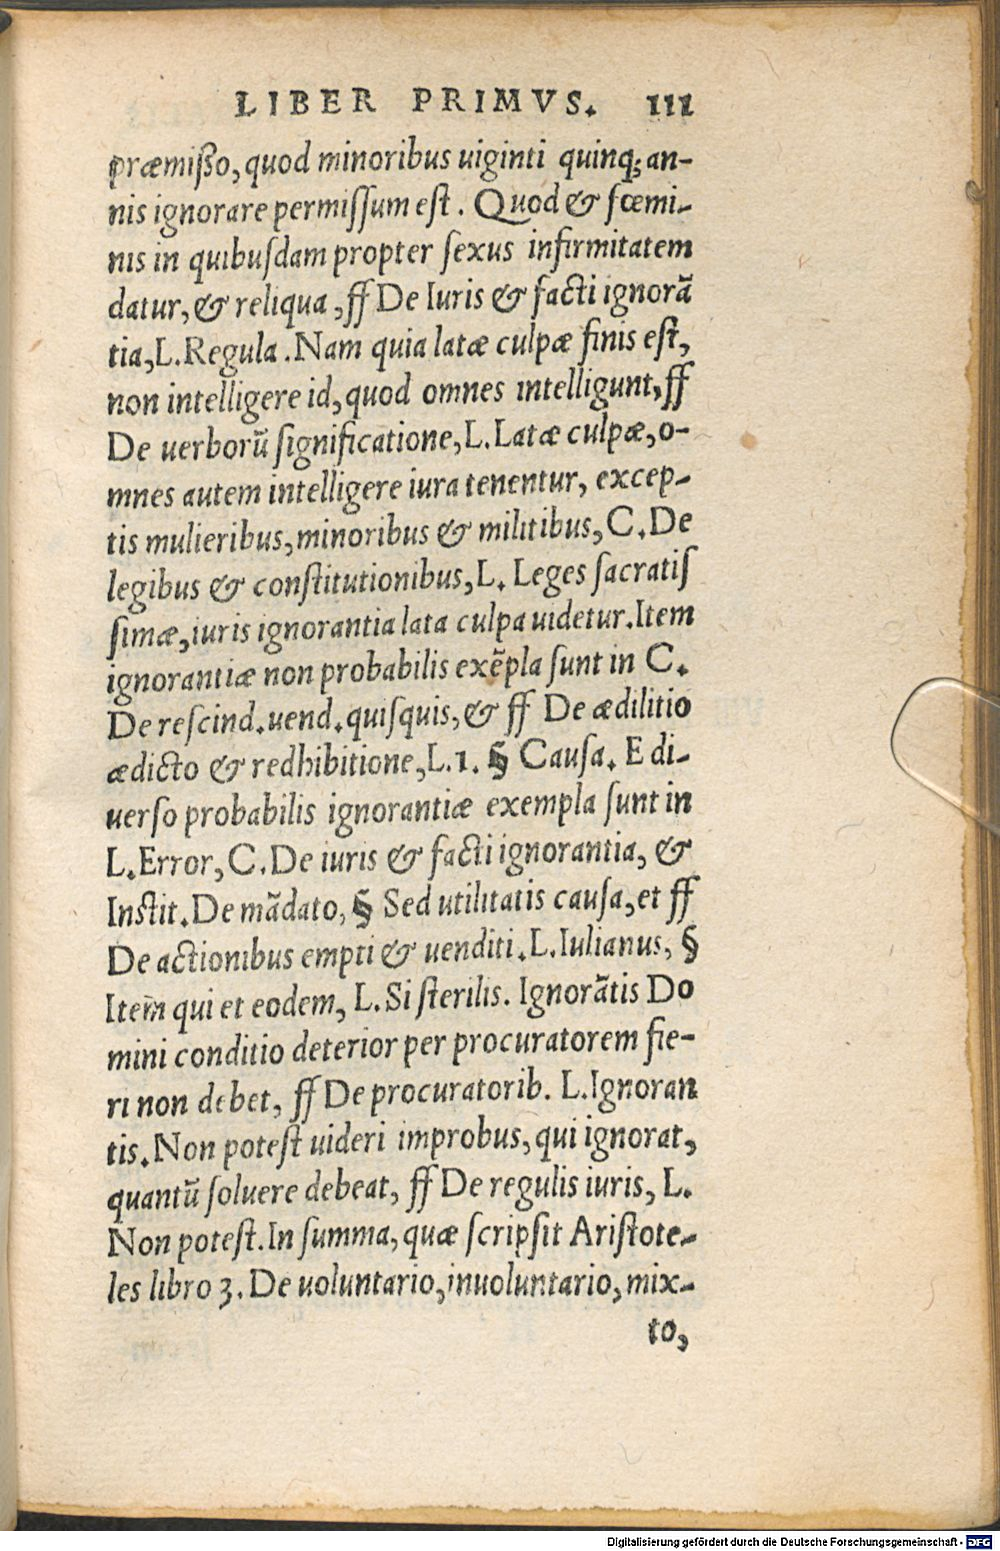 LIBER PRIMVS. 111
præmißo, quod minoribus uiginti quinq; an-
nis ignorare permiſſum eſt. Quod & fœmi-
nis in quibuſdam propter ſexus infirmitatem
datur, & reliqua, ff De Iuris & facti ignorā
tia, L. Regula. Nam quia latæ culpæ finis eſt,
non intelligere id, quod omnes intelligunt, ff
De uerborū ſignificatione, L. Latæ culpæ, o-
mnes autem intelligere iura tenentur, excep-
tis mulieribus, minoribus & militibus, C. De
legibus & conſtitutionibus, L. Leges ſacratiſ
ſimæ, iuris ignorantia lata culpa uidetur. Item
ignorantiæ non probabilis exēpla ſunt in C.
De reſcind. uend. quiſquis, & ff De ædilitio
ædicto & redhibitione, L. 1. § Cauſa. E di-
uerſo probabilis ignorantiæ exempla ſunt in
L. Error, C. De iuris & facti ignorantia, &
Inſtit. De mādato, § Sed utilitatis cauſa, et ff
De actionibus empti & uenditi. L. Iulianus, §
Item̄ qui et eodem, L. Si ſterilis. Ignorātis Do
mini conditio deterior per procuratorem fie-
ri non debet, ff De procuratorib. L. Ignoran
tis. Non poteſt uideri improbus, qui ignorat,
quantū ſoluere debeat, ff De regulis iuris, L.
Non poteſt. In ſumma, quæ ſcripſit Ariſtote-
les libro 3. De uoluntario, inuoluntario, mix-
to,
Digitalisierung gefördert durch die Deutsche Forschungsgemeinschaft - DFG